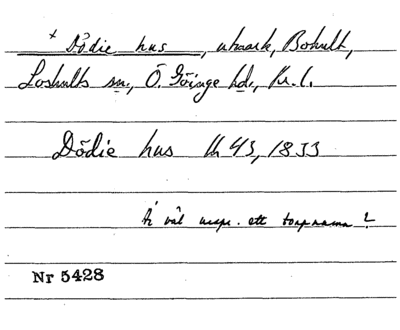 + Dödie hus, utmark, Bohult,
Loshults sn., Ö. Göinge hd., Kr. l.
Dödie hus lh 43, 1833
Är väl urspr. ett torpnamn?
Nr 5428